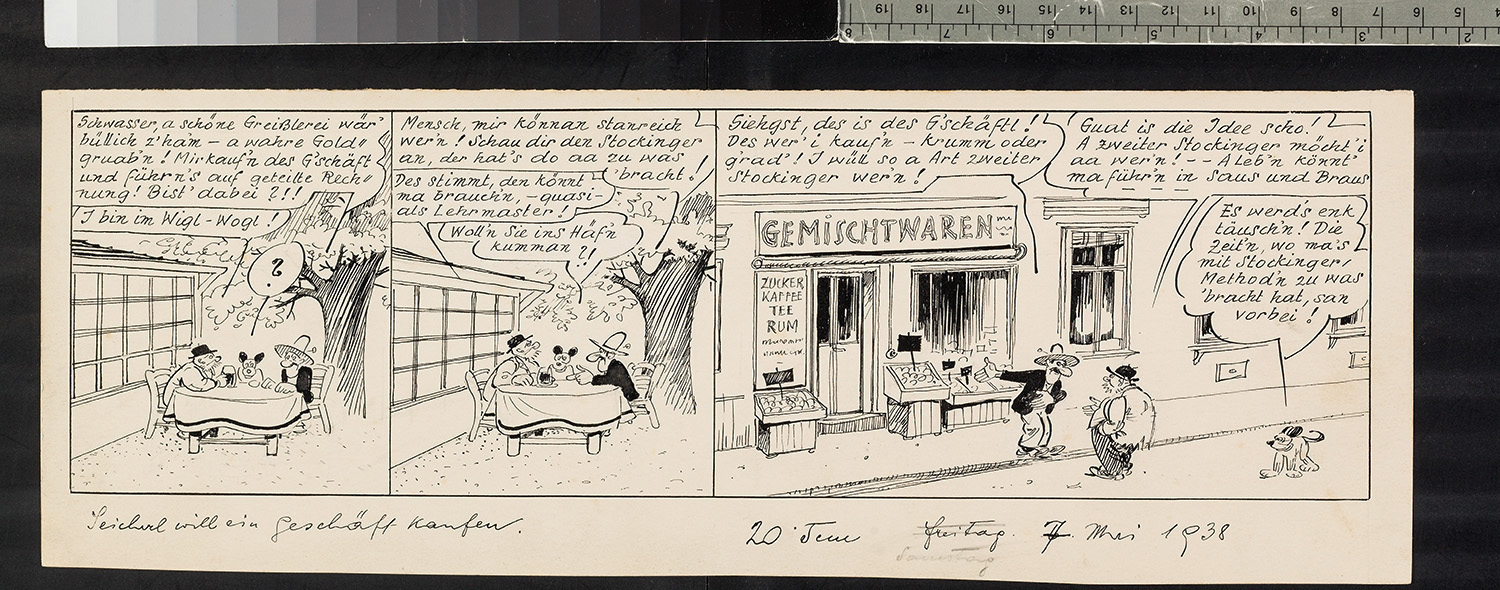 Schwasser, a schöne Greißlerei wär'
büllich z'ham – a wahre Gold=
gruab'n! Mir kauf'n des G'schäft
und führ'n's auf geteilte Rech=
nung! Bist' dabei?!!
I bin im Wigl-Wogl!
?
Mensch, mir könnan stanreich
wer'n! Schau dir den Stockinger
an, der hat's do aa zu was
'bracht!
Des stimmt, den könnt'
ma brauch'n, – quasi-
als Lehrmaster!
Woll'n Sie ins Häf'n
kumman?!
Siehgst, des is des G'schäftl!
Des wer' i kauf'n – krumm oder
g'rad'! I wüll so a Art zweiter
Stockinger wer'n!
Guat is die Idee scho!
A zweiter Stockinger möcht' i
aa wer'n! -- A Leb'n könnt'
ma führ'n in Saus und Braus
Es werd's enk
täusch'n! Die
Zeit'n, wo ma's
mit Stockinger=
Method'n zu was
'bracht hat, san
vorbei!
GEMISCHTWAREN
ZUCKER
KAFFEE
TEE
RUM
Seicherl will ein Geschäft kaufen.
20 Freitag. 7. Mai 1938
Samstag
8 19 18 17 16 15 14 13 12 11 10 9 8 7 6 5 4
7 6 5 4 3 2